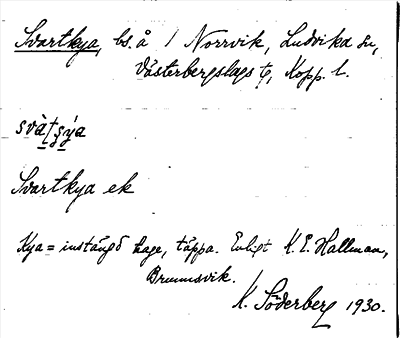 Svartkya, bs. å / Norrvik, Ludvika sn,
Västerbergslags tg, Kopp. l.
Svartkya ek
Kya = instängd hage, täppa. Enligt K. E. Hallman,
Brunnsvik.
K. Söderberg 1930.